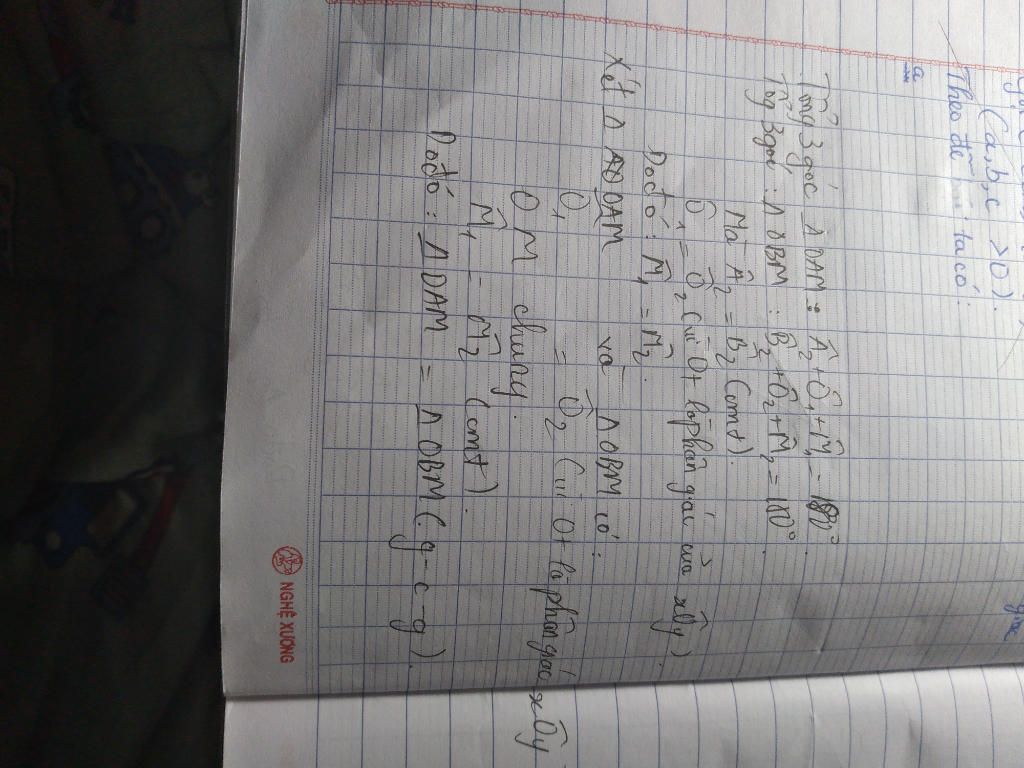 (a,b,c > 0).
Theo đề ta có:
a
Tổng 3 góc ΔOAM: Â₂ + Ô₁ + M̂₁ = 180°.
Tổg 3 góc: ΔOBM: B̂₂ + Ô₂ + M̂₂ = 180°.
Mà Â₂ = B̂₂ (cmt).
Ô₁ = Ô₂ (vì Ot là phân gác của xÔy).
Do đó: M̂₁ = M̂₂.
Xét Δ OAM và Δ OBM có:
Ô₁ = Ô₂ (vì Ot là phân gác xÔy
OM chung.
M̂₁ = M̂₂ (cmt).
Do đó: Δ OAM = Δ OBM (g-c-g).
NGHỆ XƯƠNG